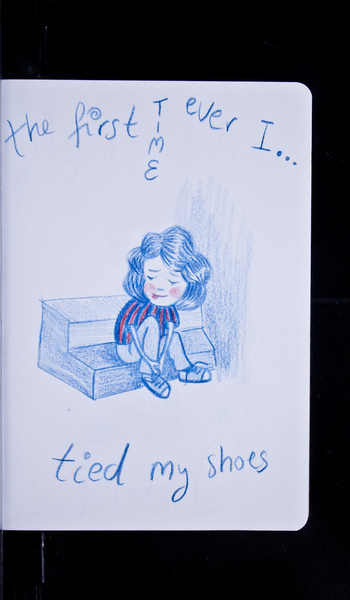 the first TIME ever I...
tied my shoes